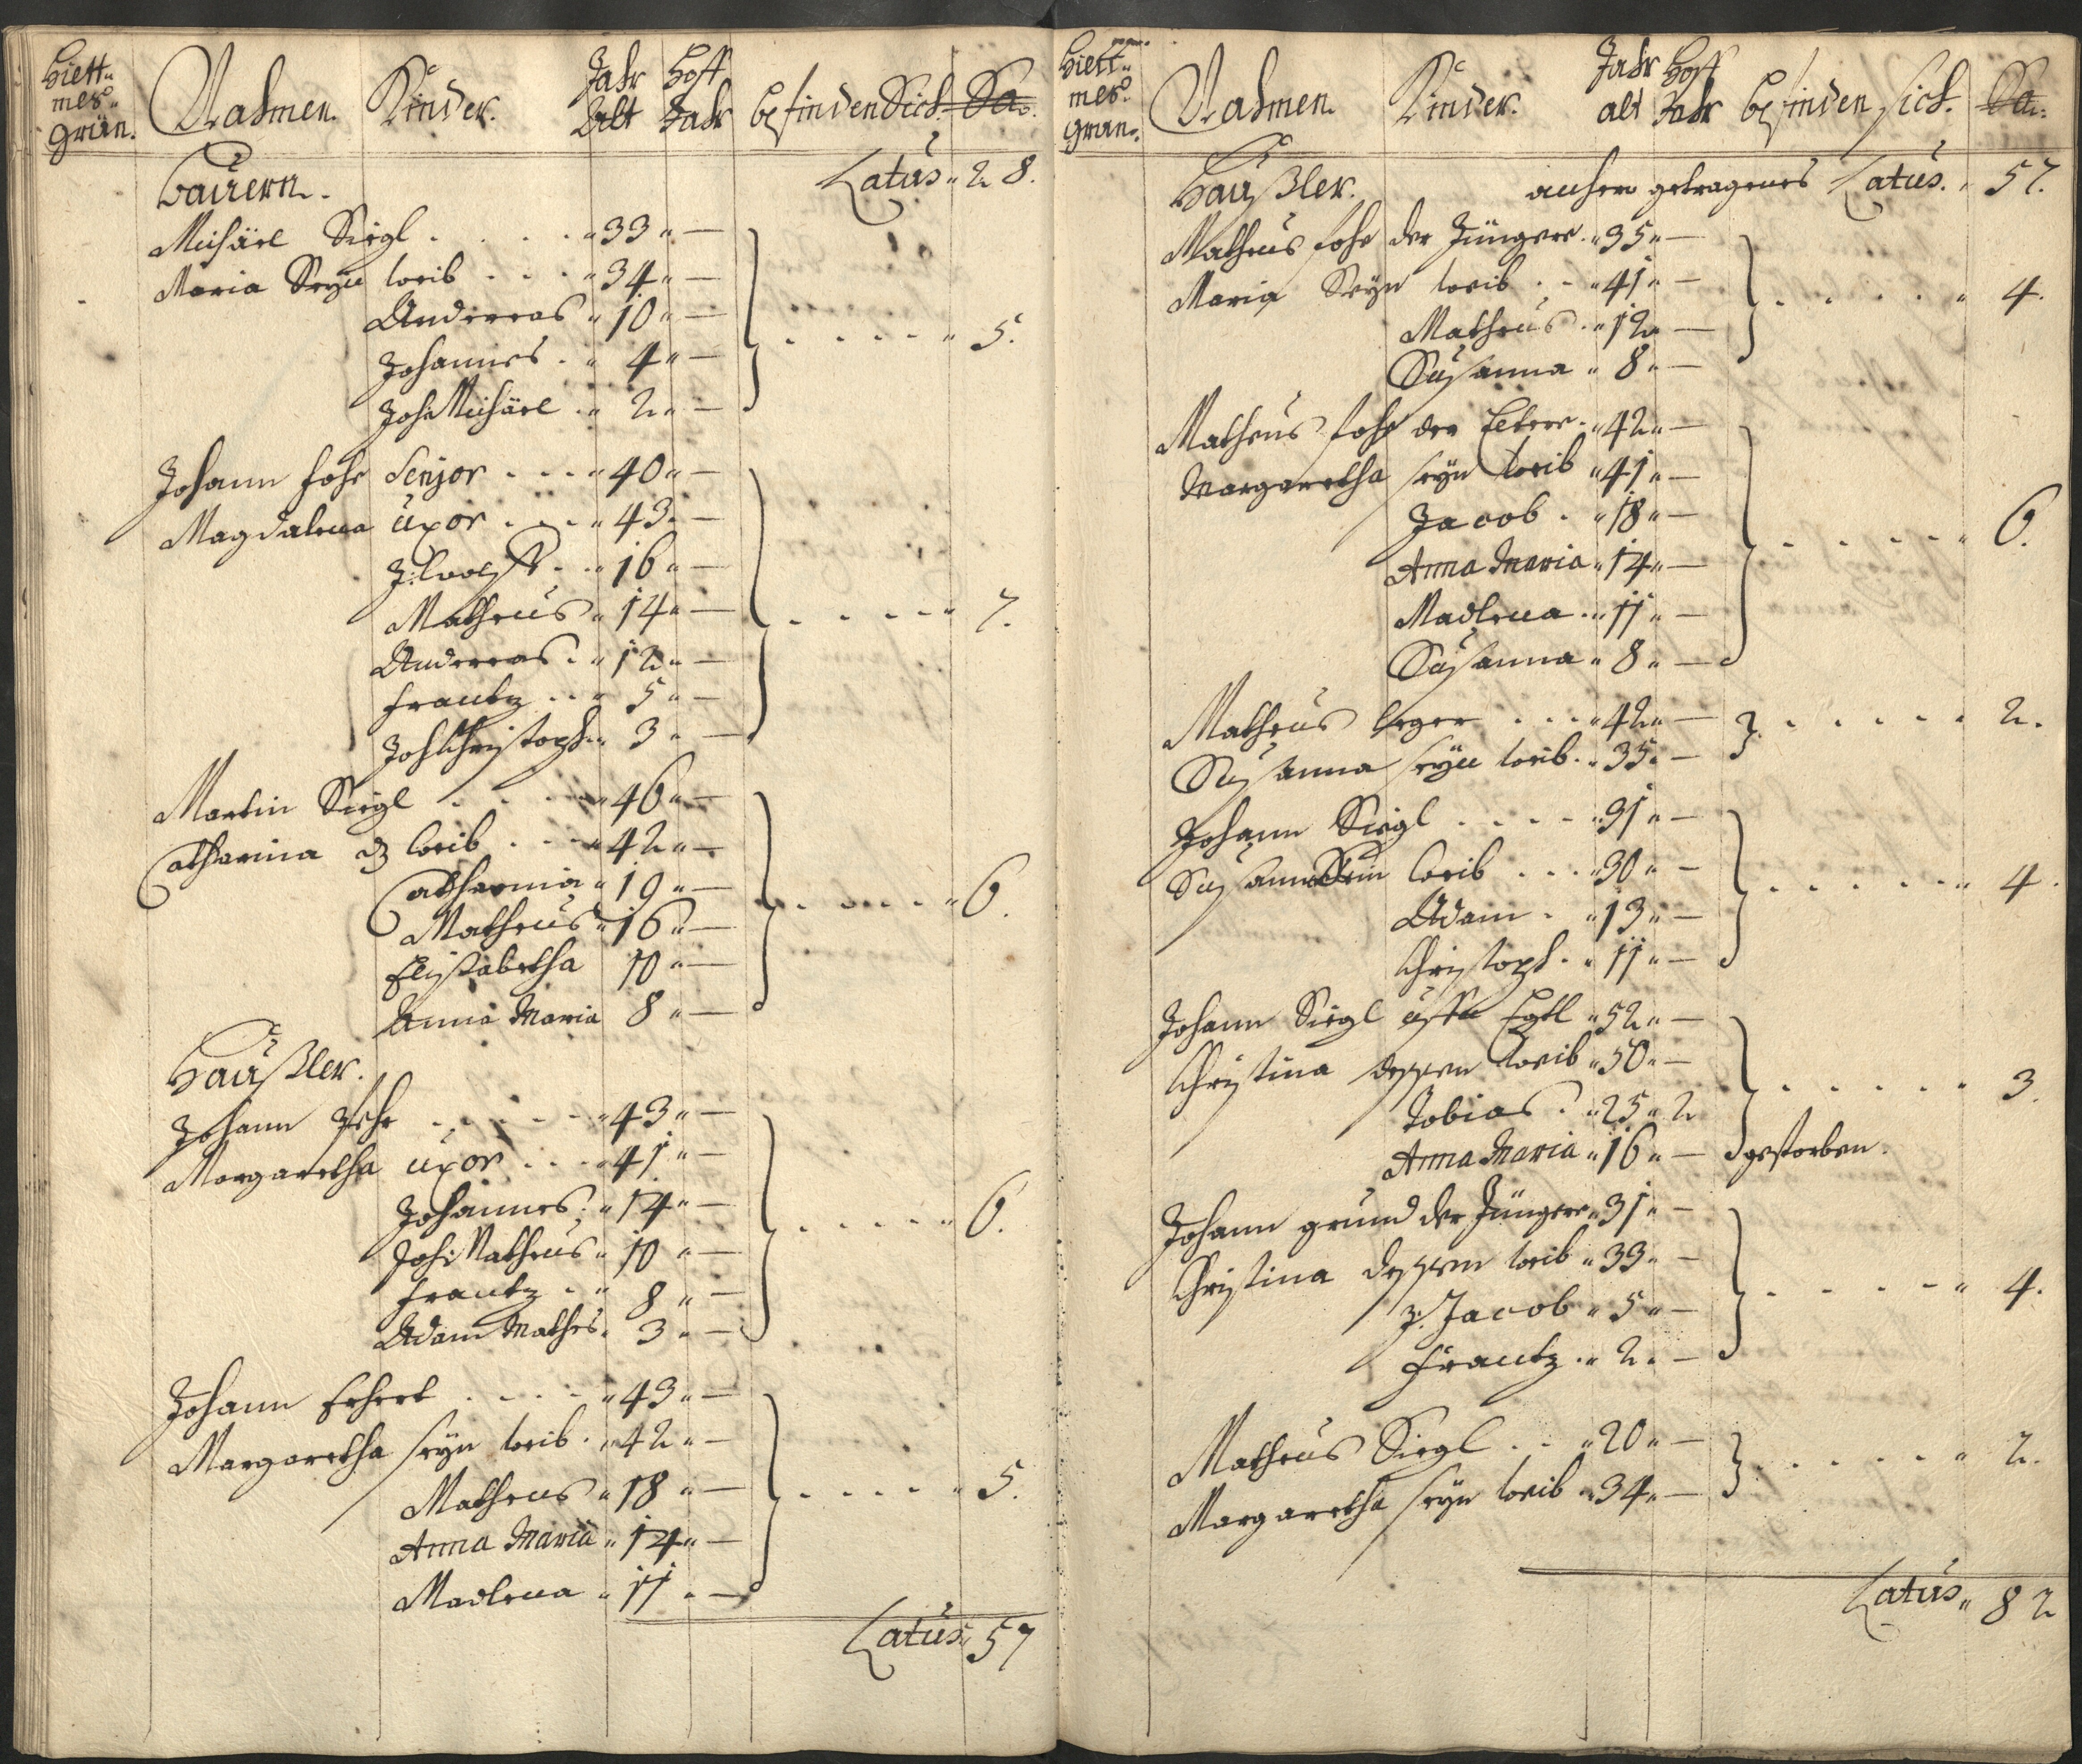 Hiett-
mes-
grün.
Nahmen. Kinder. Jahr Alt Hoff Jahr befinden Sich. Sa.
Bauern. Latus 28.
Michäel Siegl 33
Maria Seyn weib 34
Andreas 10
Johannes 4 5.
Joh: Michäel 2
Johann Senjor 40
Magdalena uxor 43
J: Wolff 16
Matheus 14 7.
Andreas 12
Frantz 5
Joh: Christoph 3
Martin Siegl 46
Catharina weib 42
Catharina 19
Matheus 16 6.
Elisabetha 10
Anna Maria 8
Häußler.
Johann 43
Margaretha uxor 41
Johannes 14
Joh: Matheus 10 6.
Frantz 8
Adam Mathes 3
Johann 43
Margaretha seyn weib 42
Matheus 18 5.
Anna Maria 14
Madlena 11
Latus 57
Hiett-
mes-
grün.
Nahmen. Kinder. Jahr alt Hoff Jahr befinden sich. Sa:
Häußler. getragenes Latus. 57.
Matheus der Jüngere 35
Maria Seyn weib 41 4.
Matheus 12
Susanna 8
Matheus der Eltere 42
Margaretha seyn weib 41
Jacob 18
Anna Maria 14 6.
Madlena 11
Susanna 8
Matheus 42 2.
Susanna seyn weib 35
Johann Siegl 31
Susanna Sein weib 30 4.
Adam 13
Christoph 11
Johann Siegl 52
Christina dessen weib 50
Tobias 25 2 3.
Anna Maria 16 gestorben.
Johann grund der Jüngere 31
Christina dessen weib 33
J: Jacob 5 4.
Frantz 2
Matheus Siegl 20 2.
Margaretha seyn weib 34
Latus 82